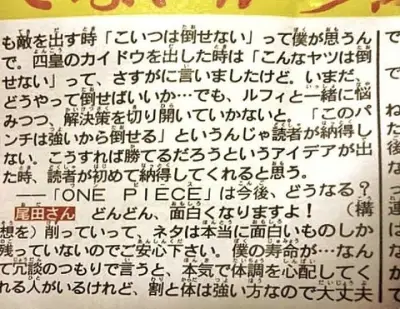 も敵を出す時「こいつは倒せない」って僕が思うん
で。四皇のカイドウを出した時は「こんなヤツは倒
せない」って、さすがに言いましたけど。いまだ、
どうやって倒せばいいか…でも、ルフィと一緒に悩
みつつ、解決策を切り開いていかないと。「このパ
ンチは強いから倒せる」というんじゃ読者が納得し
ない。こうすれば勝てるだろうというアイデアが出
た時、読者が初めて納得してくれると思う。
──「ONE PIECE」は今後、どうなる？
尾田さん どんどん、面白くなりますよ！（構
想を）削っていって、ネタは本当に面白いものしか
残っていないのでご安心下さい。僕の寿命が…なん
て冗談のつもりで言うと、本気で体調を心配してく
れる人がいるけれど、割と体は強い方なので大丈夫